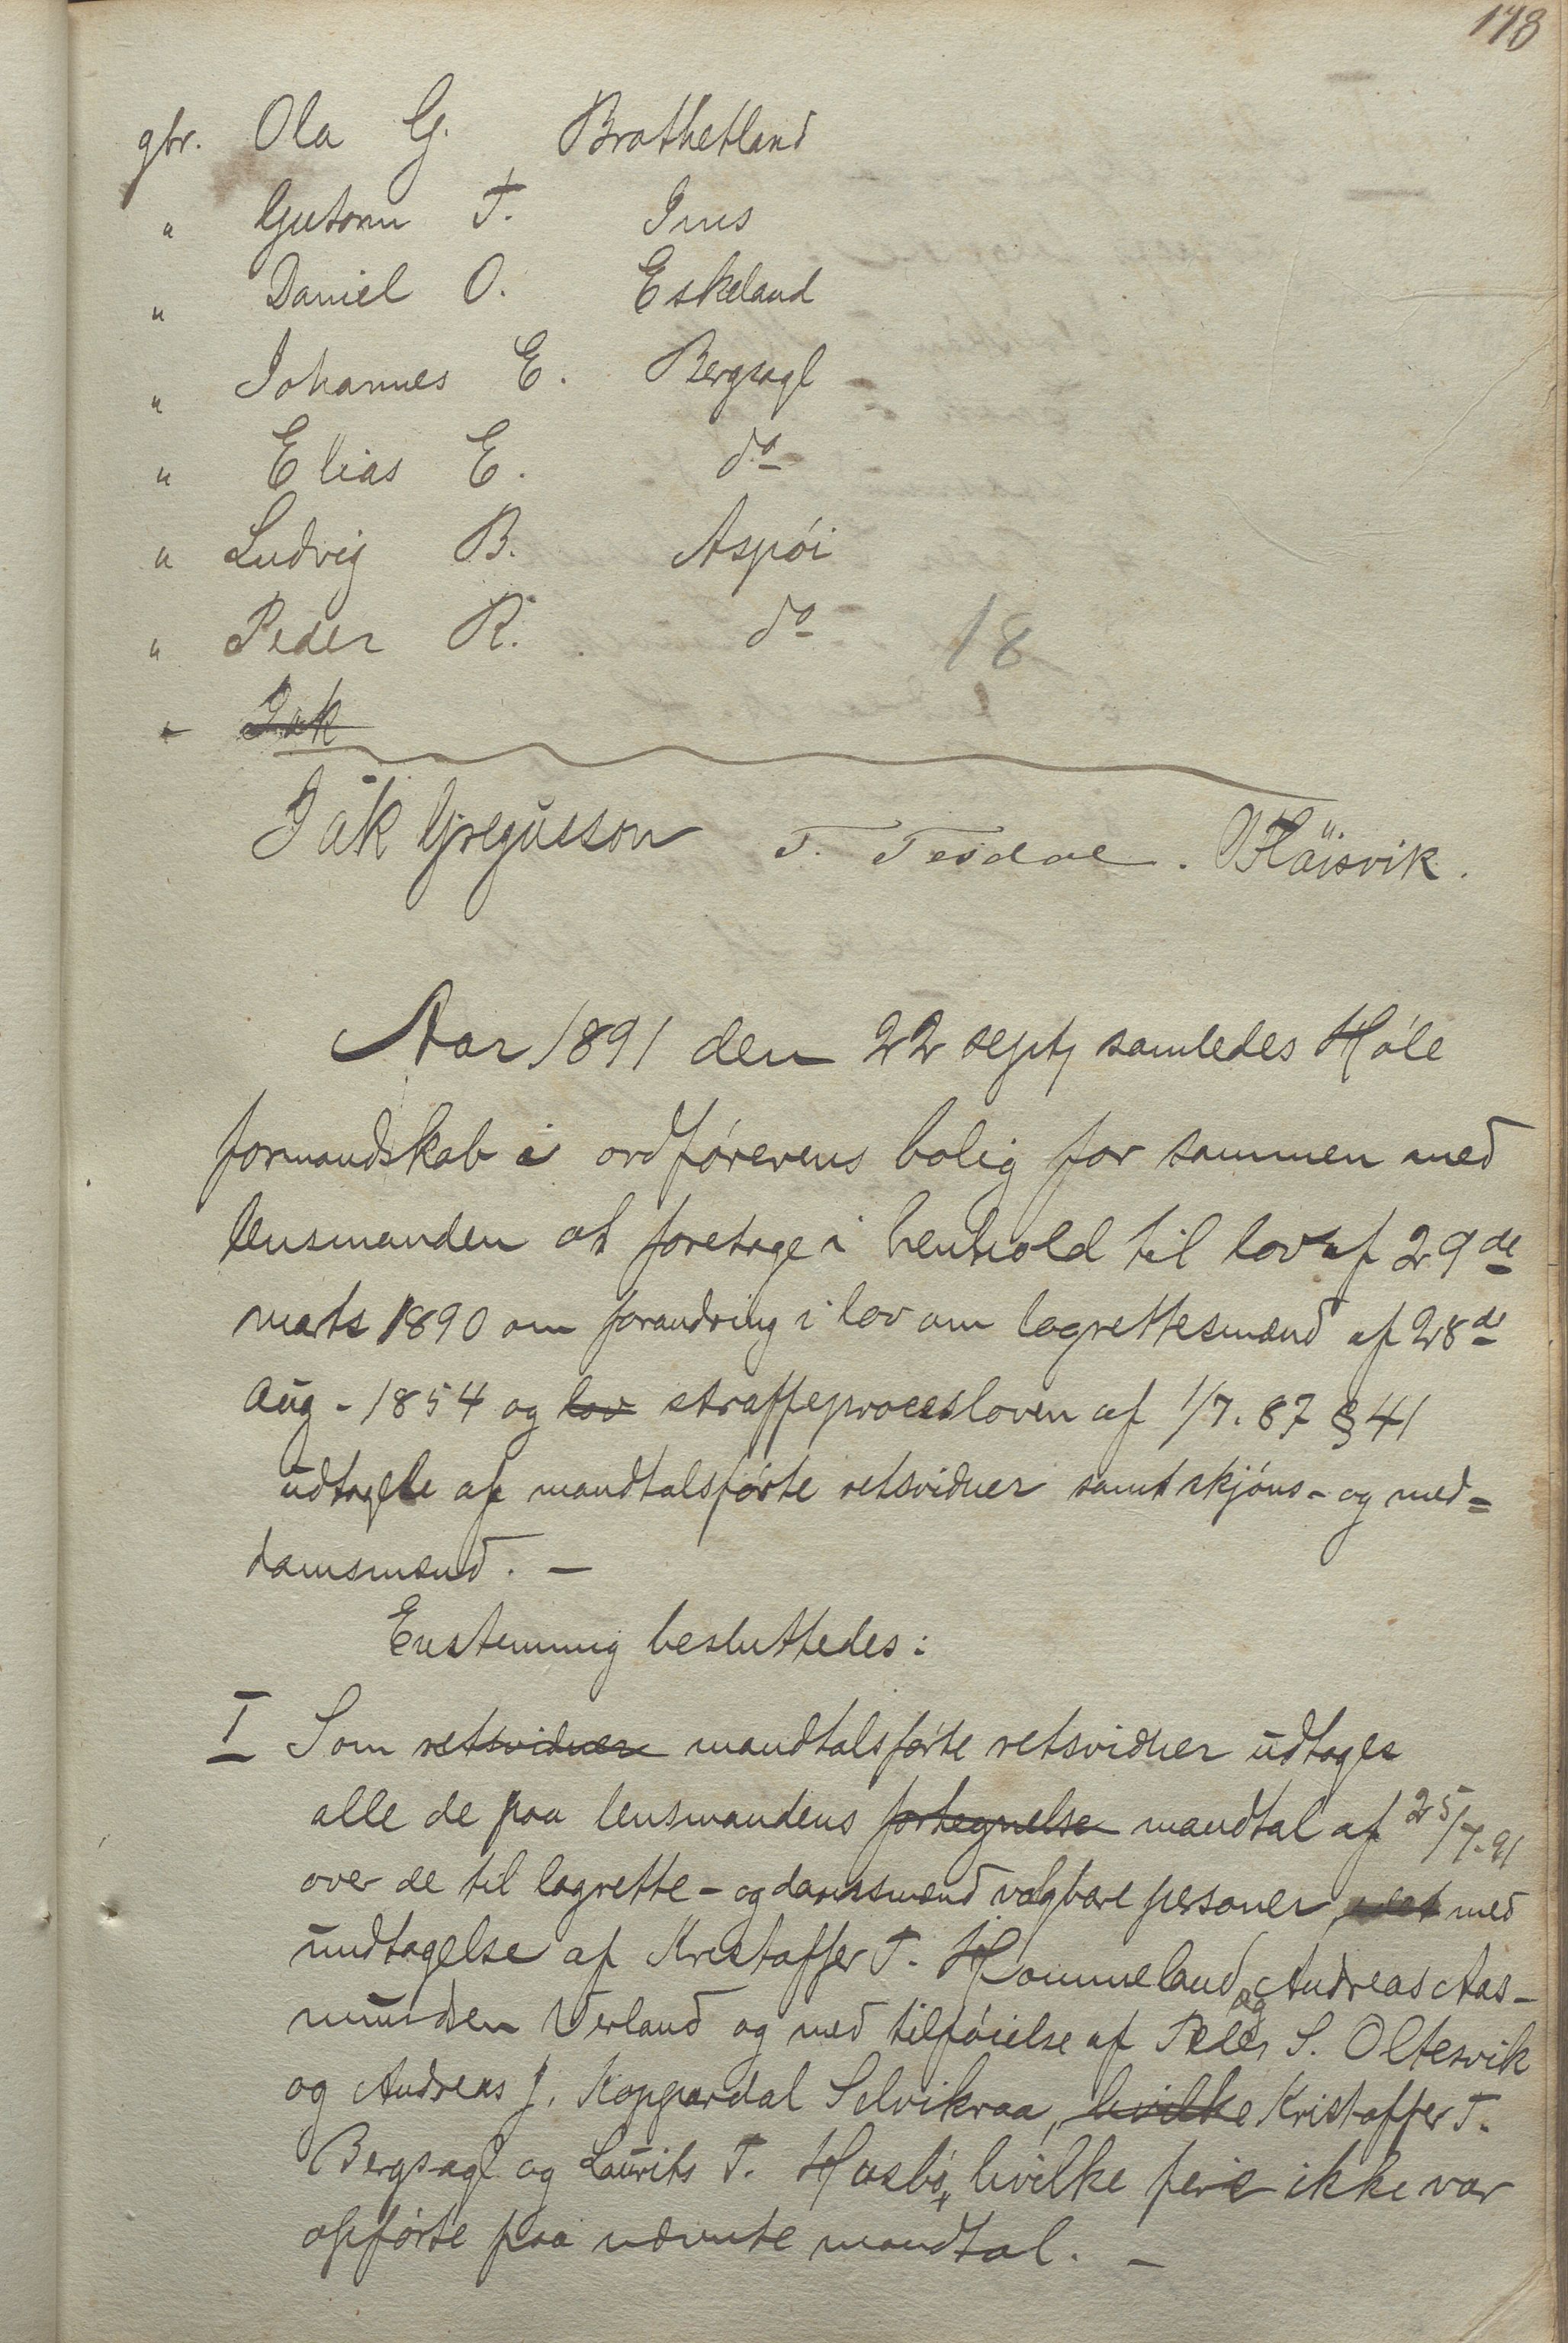 178
gbr. Ola G. Brathetland
" Gutorm T. Ims
" Daniel O. Eskeland
" Johannes E. Bergsagl
" Elias E. do
" Ludvig B. Aspói
" Peder R. do 18
" Jak
Jak Gregusson T. Tesdal. Häisvik.
Aar 1891 den 22 septb samledes Hóle
formandskab i ordfórerens bolig for sammen med
lensmanden at foretage i henhold til lov af 29de
marts 1890 om forandring i lov om lagrettesmænd af 28de
Aug - 1854 og lov straffeprocesloven af 1/7. 87 § 41
udtagelse af mandtalsfórte retsvidner samt skjóns- og med=
damsmænd. -
Enstemmig besluttedes:
I Som retsvidner mandtalsfórte retsvidner udtages
alle de paa lensmandens fortegnelse mandtal af 25/7-91
over de til lagrette- og domsmænd valgbare personer, med
undtagelse af Kristoffer T. Hommeland og Andreas Aas-
mundsen Verland og med tilfóielse af Peder S. Oltesvik
og Andreas J. Koppardal Selvikraa, hvilke Kristoffer T.
Bergsagl og Laurits T. Husbó, hvilke ikke var
opfórte paa nævnte mandtal. -